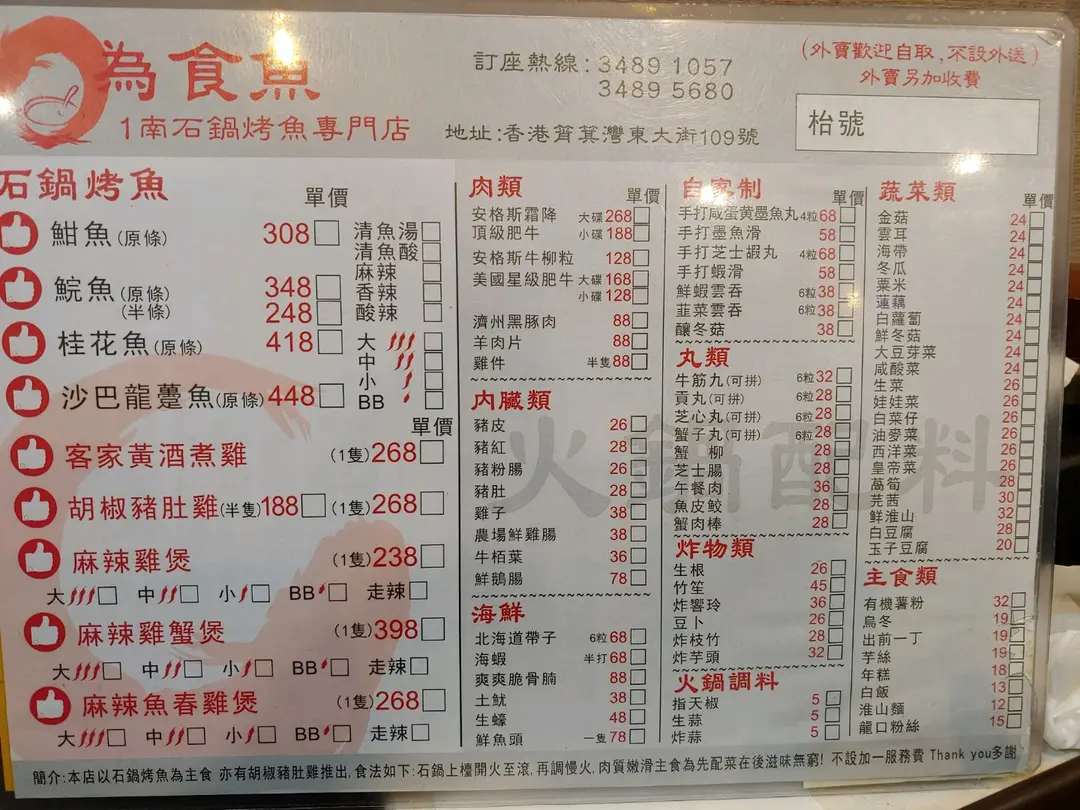 為食魚
1南石鍋烤魚專門店
訂座熱線: 3489 1057
3489 5680
地址:香港筲箕灣東大街109號
(外賣歡迎自取,不設外送)
外賣另加收費
枱號
石鍋烤魚
單價
魽魚(原條) 308
鯇魚(原條) 348
(半條) 248
桂花魚(原條) 418
沙巴龍躉魚(原條) 448
清魚湯
清魚酸
麻辣
香辣
酸辣
大
中
小
BB
單價
客家黃酒煮雞 (1隻)268
胡椒豬肚雞(半隻)188 (1隻)268
麻辣雞煲 (1隻)238
大 中 小 BB 走辣
麻辣雞蟹煲 (1隻)398
大 中 小 BB 走辣
麻辣魚春雞煲 (1隻)268
大 中 小 BB 走辣
肉類
單價
安格斯霜降 大碟268
頂級肥牛 小碟188
安格斯牛柳粒 128
美國星級肥牛 大碟168
小碟128
濟州黑豚肉 88
羊肉片 88
雞件 半隻88
內臟類
豬皮 26
豬紅 28
豬粉腸 26
豬肚 28
雞子 38
農場鮮雞腸 38
牛栢葉 36
鮮鵝腸 78
海鮮
北海道帶子 6粒68
海蝦 半打68
爽爽脆骨腩 88
土魷 38
生蠔 48
鮮魚頭 一隻78
自家制
單價
手打咸蛋黄墨魚丸 4粒68
手打墨魚滑 58
手打芝士蝦丸 4粒68
手打蝦滑 58
鮮蝦雲吞 6粒38
韮菜雲吞 6粒38
釀冬菇 38
丸類
牛筋丸(可拼) 6粒32
貢丸(可拼) 6粒28
芝心丸(可拼) 6粒28
蟹子丸(可拼) 6粒28
蟹柳 28
芝士腸 28
午餐肉 36
魚皮餃 28
蟹肉棒 28
炸物類
生根 26
竹笙 45
炸響玲 36
豆卜 26
炸枝竹 28
炸芋頭 32
火鍋調料
指天椒 5
生蒜 5
炸蒜 5
蔬菜類
單價
金菇 24
雲耳 24
海帶 24
冬瓜 24
粟米 24
蓮藕 24
白蘿蔔 24
鮮冬菇 24
大豆芽菜 24
咸酸菜 24
生菜 26
娃娃菜 26
白菜仔 26
油麥菜 26
西洋菜 26
皇帝菜 26
萵筍 28
芫茜 30
鮮淮山 32
白豆腐 28
玉子豆腐 20
主食類
有機薯粉 32
烏冬 19
出前一丁 19
芋絲 19
年糕 18
白飯 13
淮山麵 12
龍口粉絲 15
火鍋配料
簡介:本店以石鍋烤魚為主食 亦有胡椒豬肚雞推出,食法如下:石鍋上檯開火至滾,再調慢火,肉質嫩滑主食為先配菜在後滋味無窮! 不設加一服務費 Thank you多謝